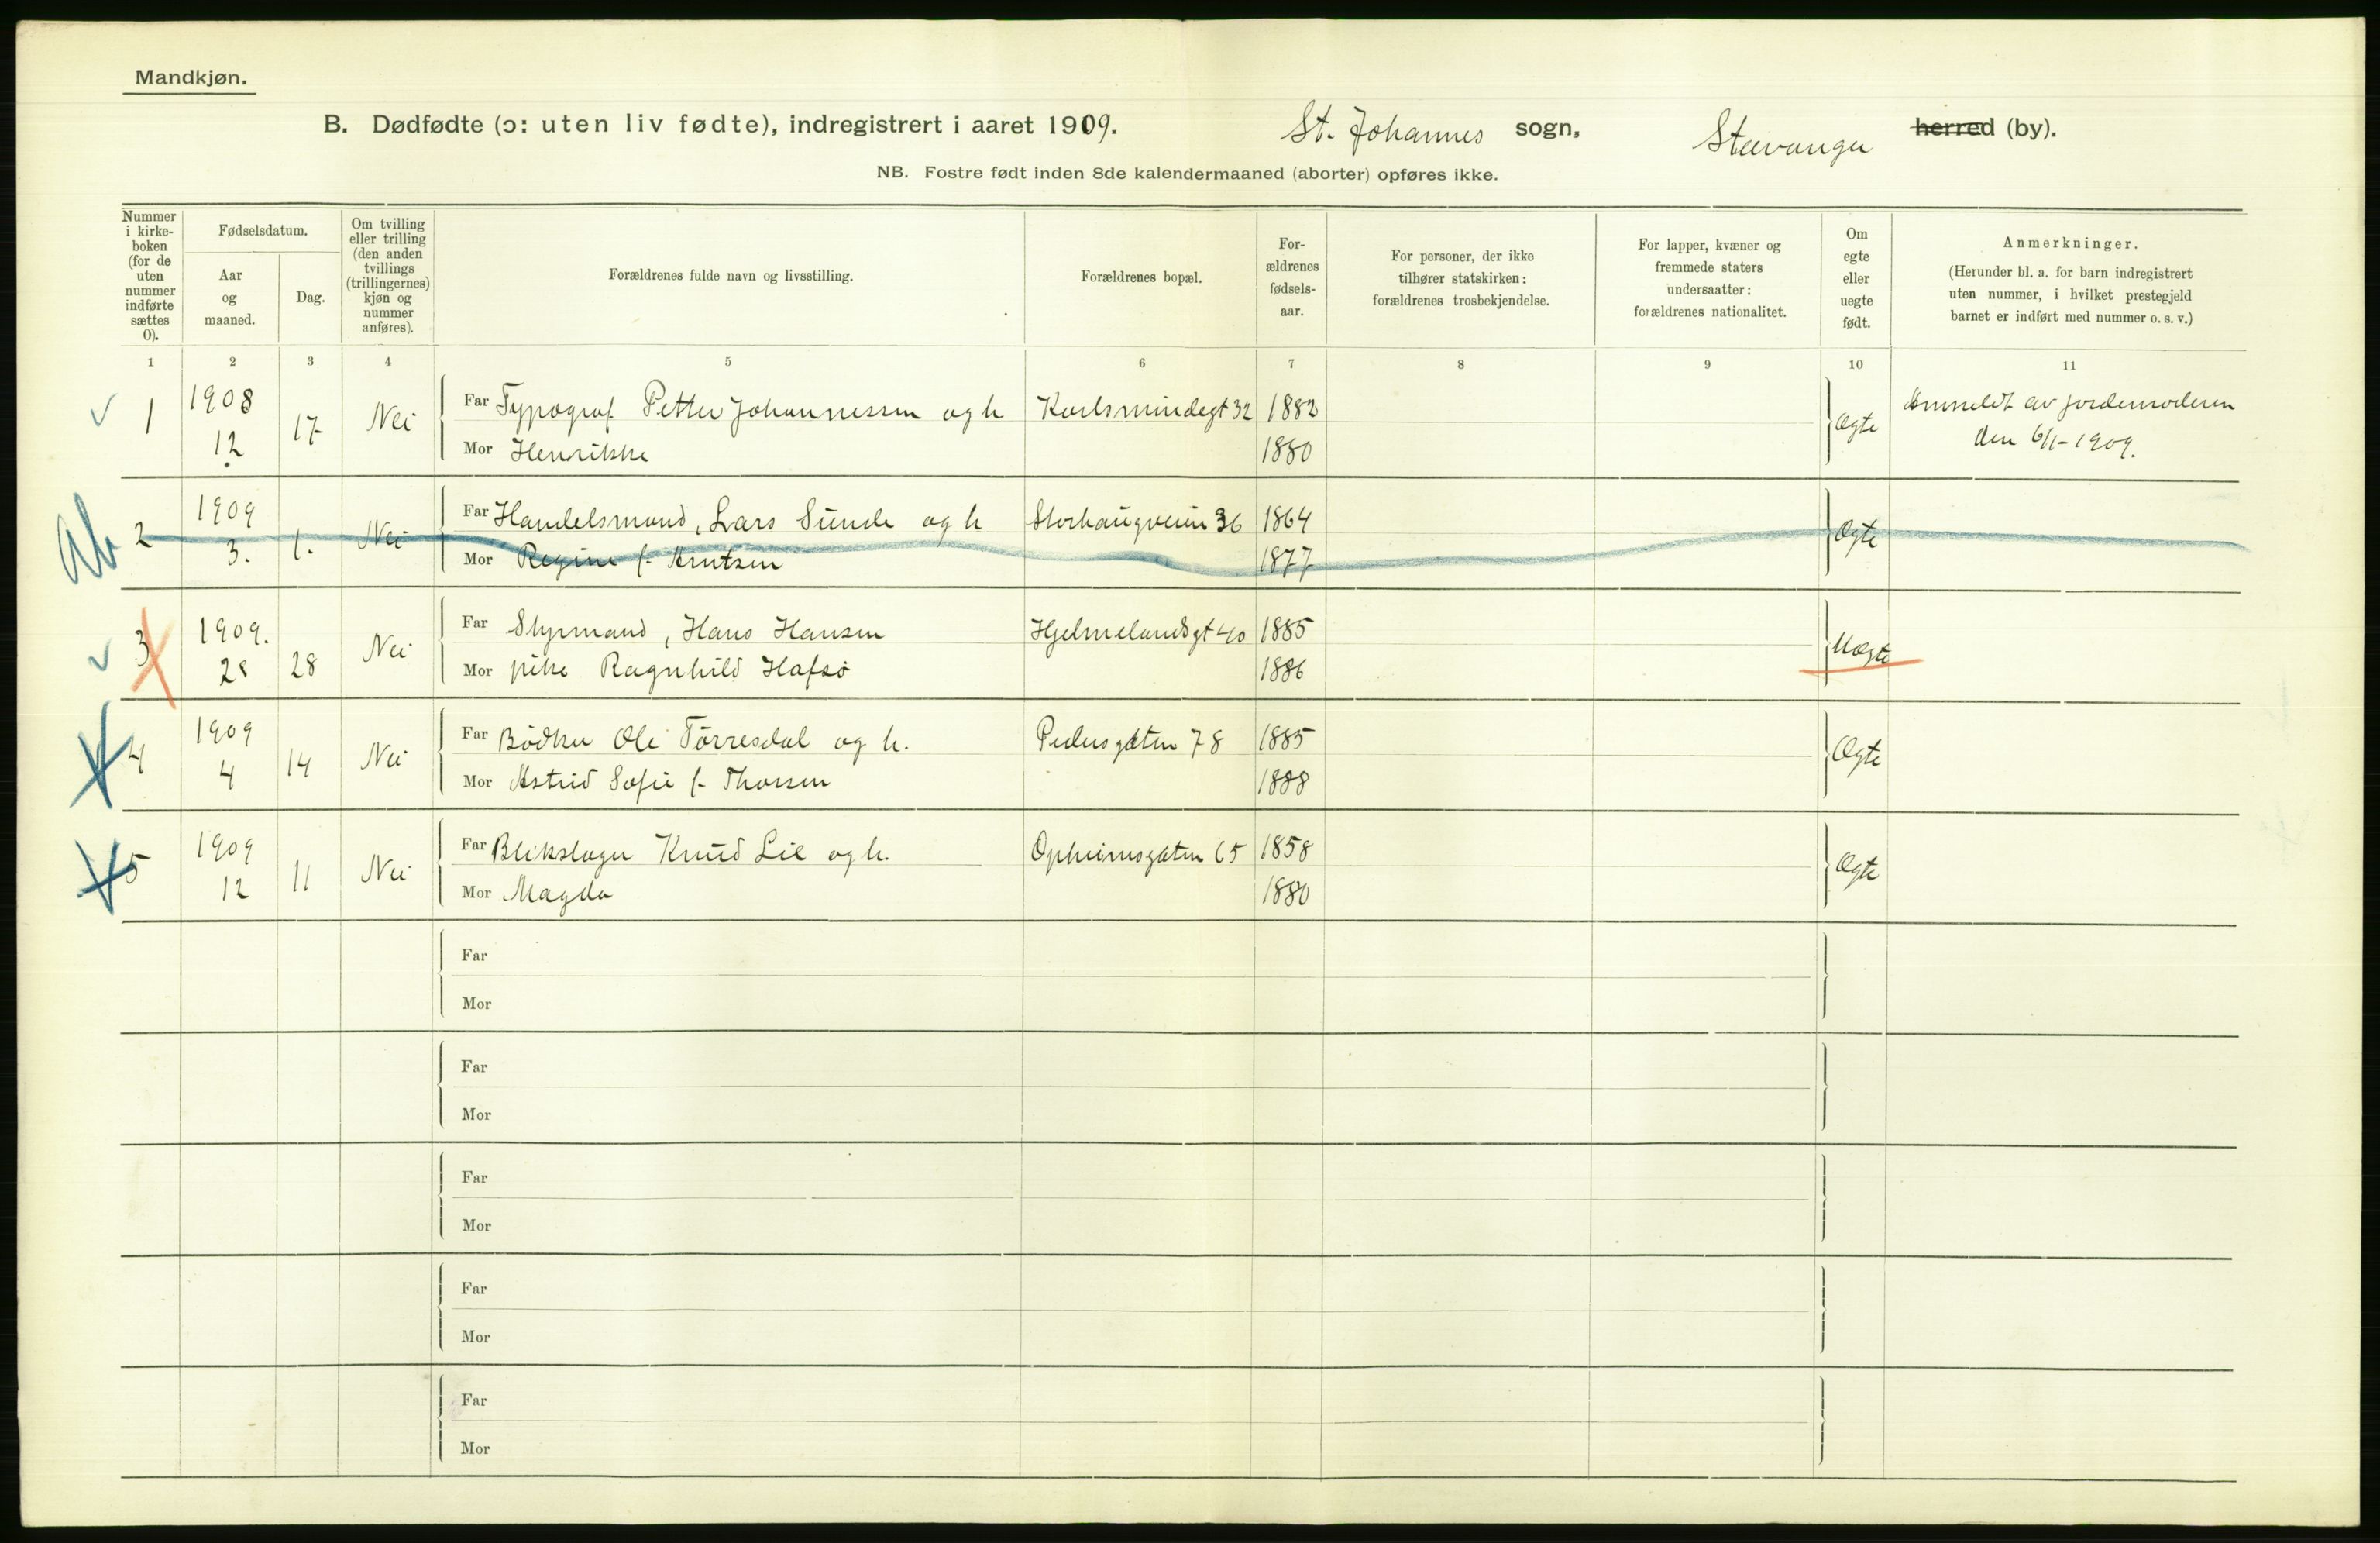 Mandkjøn.
B. Dødfødte (ɔ: uten liv fødte), indregistrert i aaret 1909. St. Johannes sogn, Stavanger herred (by).
NB. Fostre født inden 8de kalendermaaned (aborter) opføres ikke.
Nummer i kirke- boken (for de uten nummer indførte sættes 0).
Fødselsdatum.
Aar og maaned.
Dag.
Om tvilling eller trilling (den anden tvillings (trillingernes) kjøn og nummer anføres).
Forældrenes fulde navn og livsstilling.
Forældrenes bopæl.
For- ældrenes fødsels- aar.
For personer, der ikke tilhører statskirken: forældrenes trosbekjendelse.
For lapper, kvæner og fremmede staters undersaatter: forældrenes nationalitet.
Om egte eller uegte født.
Anmerkninger.
(Herunder bl. a. for barn indregistrert uten nummer, i hvilket prestegjeld barnet er indført med nummer o. s. v.)
1 2 3 4 5 6 7 8 9 10 11
1 1908 12 17 Nei Far Typograf Petter Johannessen og h Karlsmindegt 32 1882 Ægte Anmeldt av jordemoderen
Mor Henrikke 1880 den 6/1-1909.
Ab 2 1909 3. 1. Nei Far Handelsmand, Lars Sunde og h Storhaugveien 36 1864 Ægte
Mor Regine f. Knutsen 1877
3 1909. 28 28 Nei Far Styrmand, Hans Hansen Hjelmelandsgt 40 1885 Uægte
Mor pike Ragnhild Hafsø 1886
4 1909 4 14 Nei Far Bødker Ole Tørresdal og h. Pedersgaten 78 1885 Ægte
Mor Astrid Sofie f. Thorsen 1888
5 1909 12 11 Nei Far Blikslager Knud Lie og h. Opheimsgaten 65 1858 Ægte
Mor Magda 1880
Far
Mor
Far
Mor
Far
Mor
Far
Mor
Far
Mor